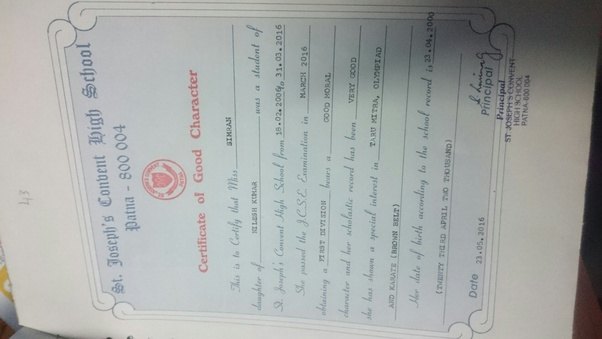 43
St. Joseph's Convent High School
Patna - 800 004
Certificate of Good Character
This is to Certify that Miss SIMRAN
daughter of NILESH KUMAR was a student of
St. Joseph's Convent High School from 18.02.2005 to 31.03.2016
She passed the I.C.S.E. Examination in MARCH 2016
obtaining a FIRST DIVISION bears a GOOD MORAL
character and her scholastic record has been VERY GOOD
she has shown a special interest in TARU MITRA, OLYMPIAD
AND KARATE (BROWN BELT)
Her date of birth according to the school record is 23.04.2000
(TWENTY THIRD APRIL TWO THOUSAND)
Date 23.05.2016
Principal
Principal
ST JOSEPH'S CONVENT
HIGH SCHOOL
PATNA-800 004